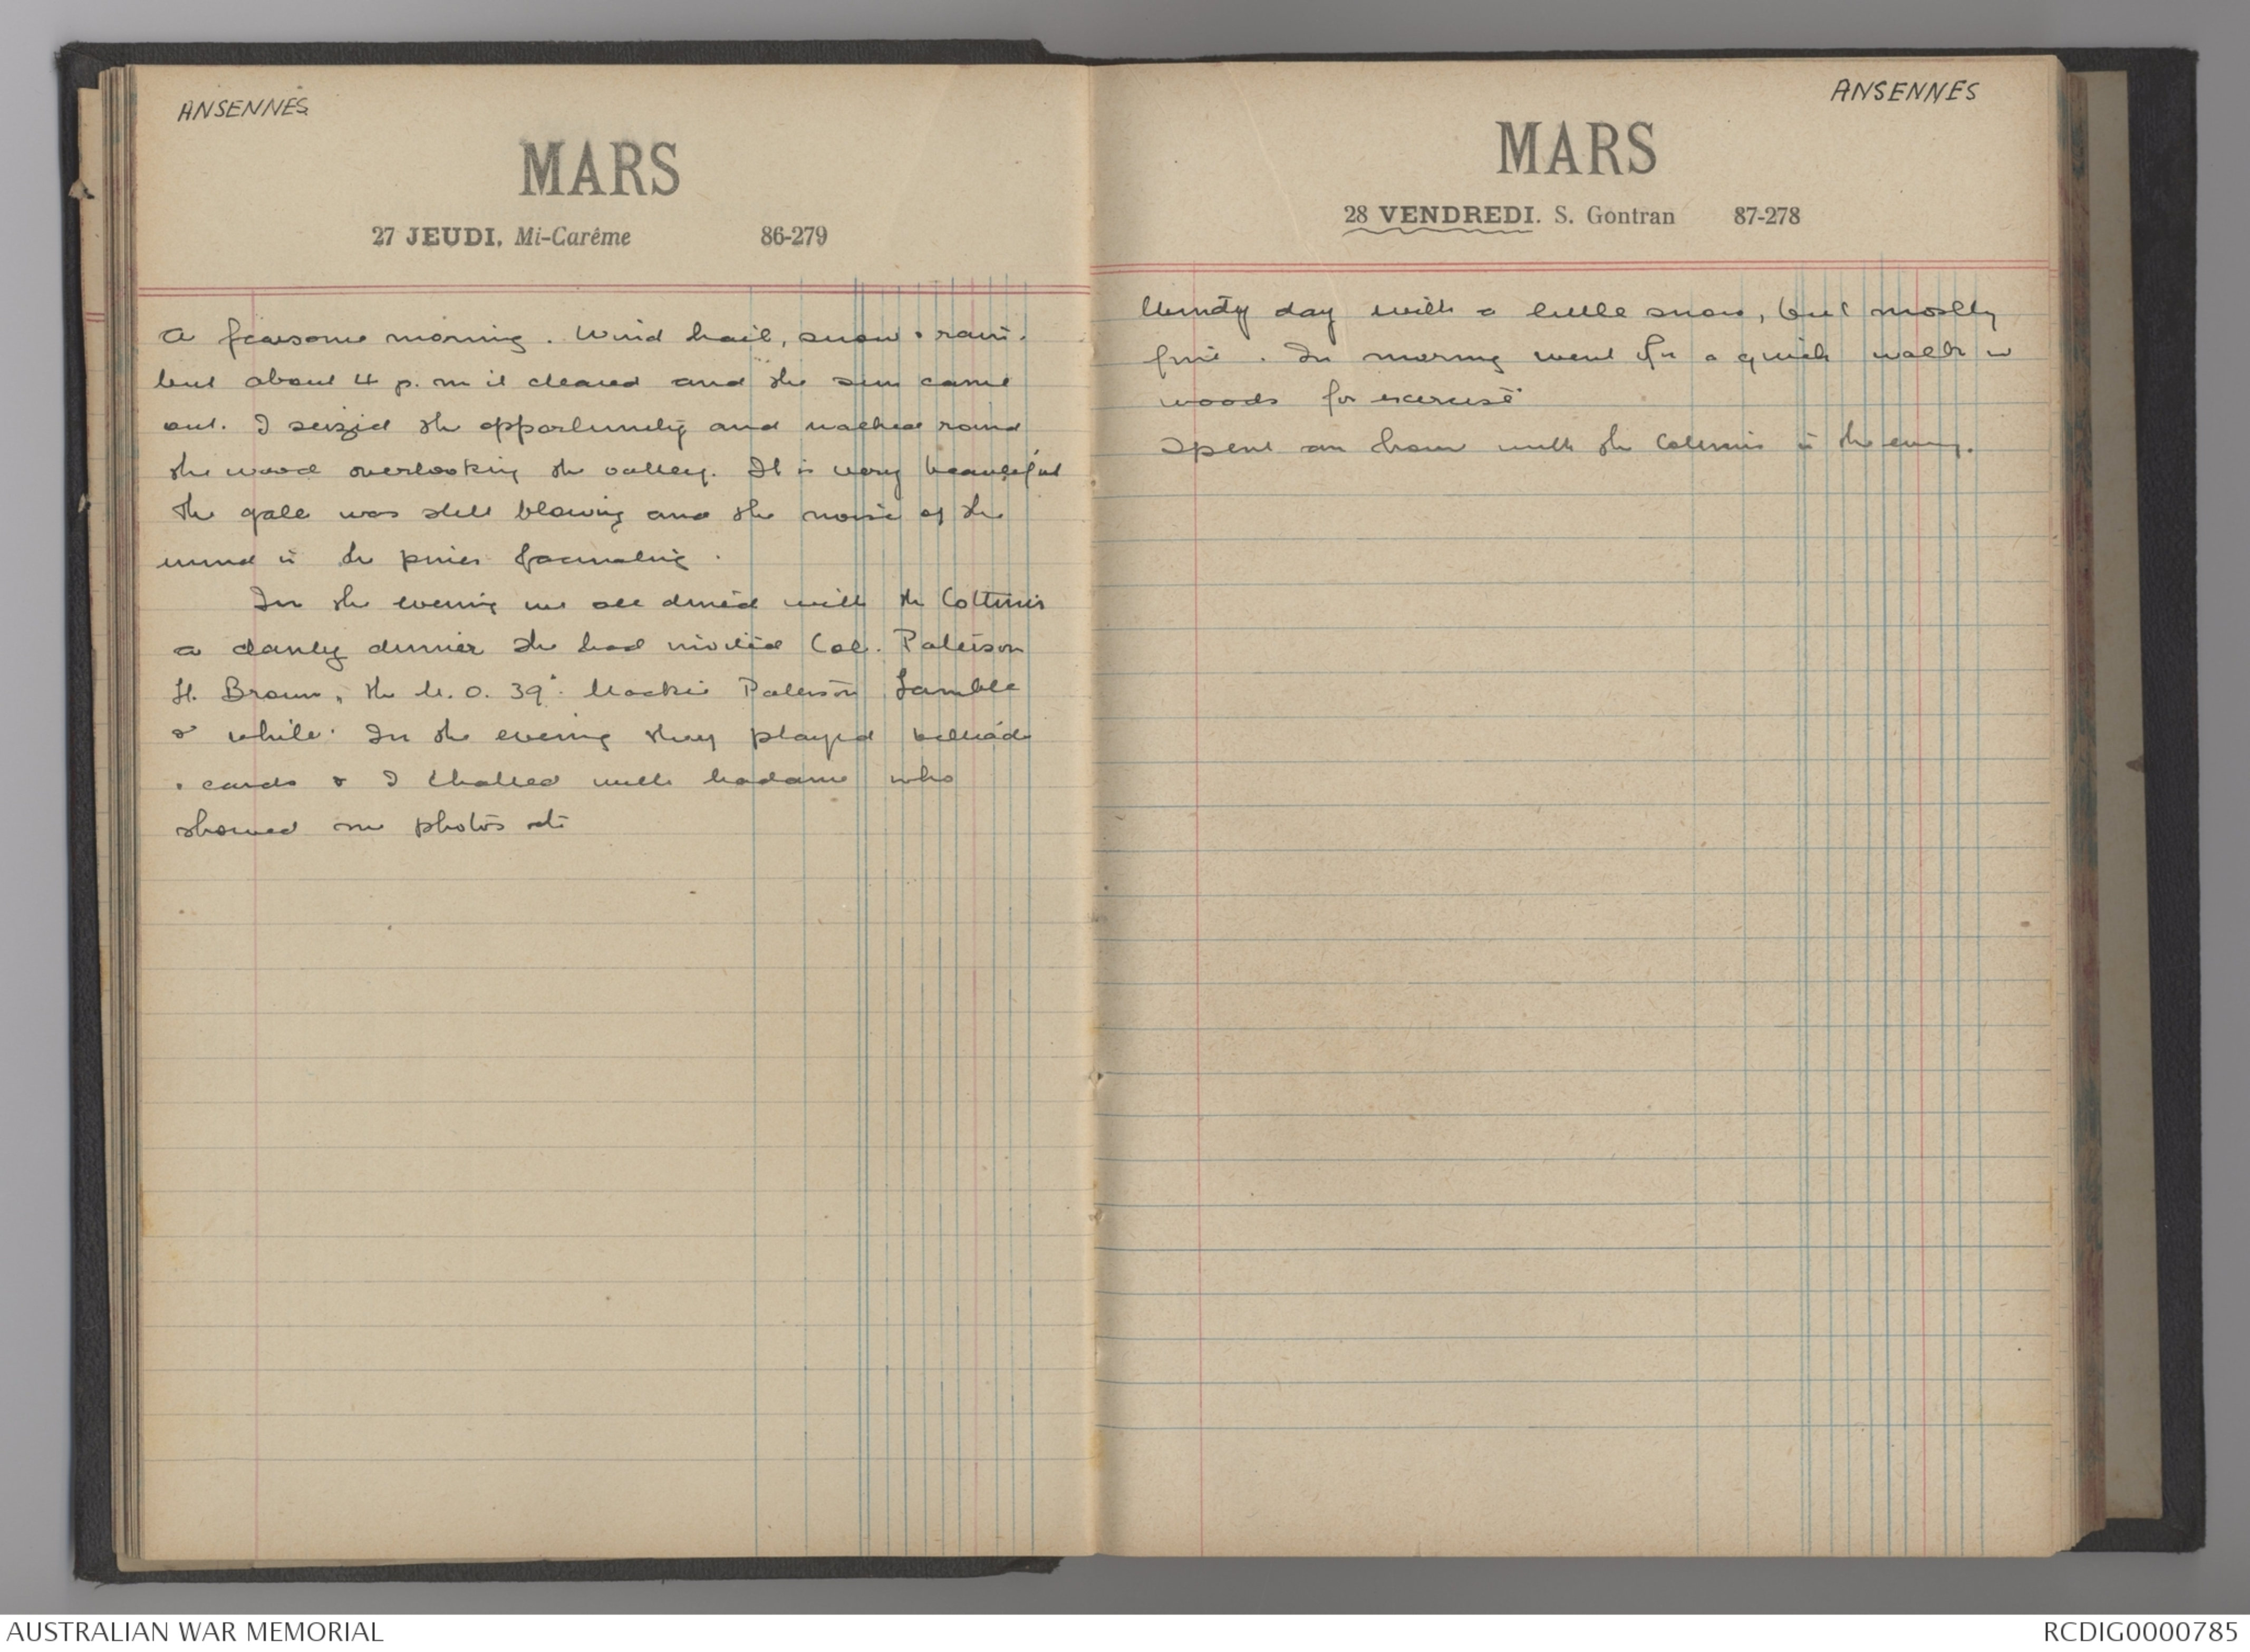 ANSENNES
MARS
27 JEUDI, Mi-Carême 86-279
A fearsome morning. Wind hail, snow & rain.
but about 4 p.m it cleared and the sun came
out. I seized the opportunity and walked round
the wood overlooking the valley. It is very beautiful
The gale was still blowing and the noise of the
wind in the pines
In the evening we all dined with the Cottinis
a dainty dinner She had invited Col. Paterson
H. Brown, the M.O. 39th. Mackie Paterson Lamble
& White. In the evening they played billiards
& cards & I chatted with Madame who
showed me photos etc
ANSENNES
MARS
28 VENDREDI. S. Gontran 87-278
Windy day with a little snow, but mostly
fine. In morning went for a quick walk in
woods for exercise
Spent an hour with the in the evening.
AUSTRALIAN WAR MEMORIAL
RCDIG0000785